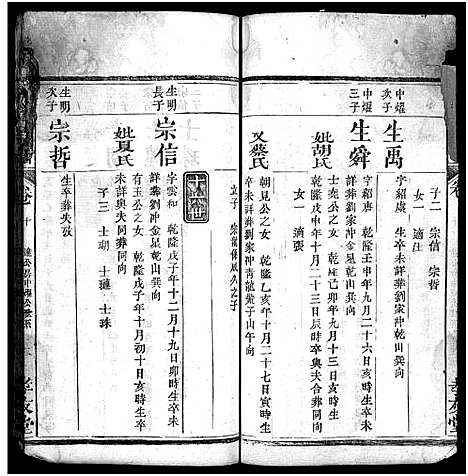 子二 宗信 宗哲
女一 適汪
中燿次子
生禹
字紹虞 生卒未詳葬劉家冲乾山巽向
中燿三子
生舜
字紹唐 乾隆壬申年九月二十六日亥時生卒未
詳葬劉家冲金星乾山巽向
妣胡氏
士堯公之女 乾隆己卯年九月十三日辰時生
乾隆戊申年十月二十三日辰時卒與夫合葬同向
女一 適張
又蔡氏
朝見公之女 乾隆乙亥年十月二十七日寅時生
卒未詳葬劉家冲青龍嘴子山午向
立子 宗龍係成久之子
十五世
生明長子
宗信
字雲和 乾隆戊子年十二月十九日卯時生卒未
詳葬劉冲金星乾山巽向
妣夏氏
有玉公之女 乾隆戊子年十月初十日亥時生卒
未詳與夫同葬同向
子三 士瑚 士璉 士珠
生明次子
宗哲
生卒葬失攷
卷十
孝友堂